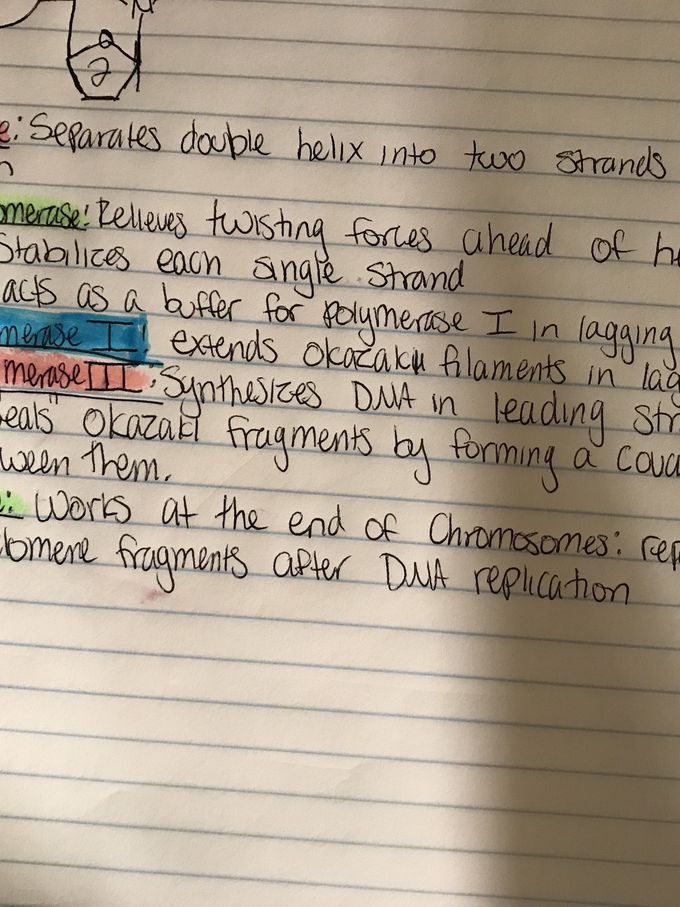 N
2
e: Separates double helix into two strands
n
omerase: Relieves twisting forces ahead of he
Stabilizes each single strand
acts as a buffer for polymerase I in lagging
merase I: extends Okazaki filaments in lag
merase III: Synthesizes DNA in leading str
eals" Okazaki fragments by forming a cova
ween them.
e: Works at the end of Chromosomes: rep
lomere fragments after DNA replication